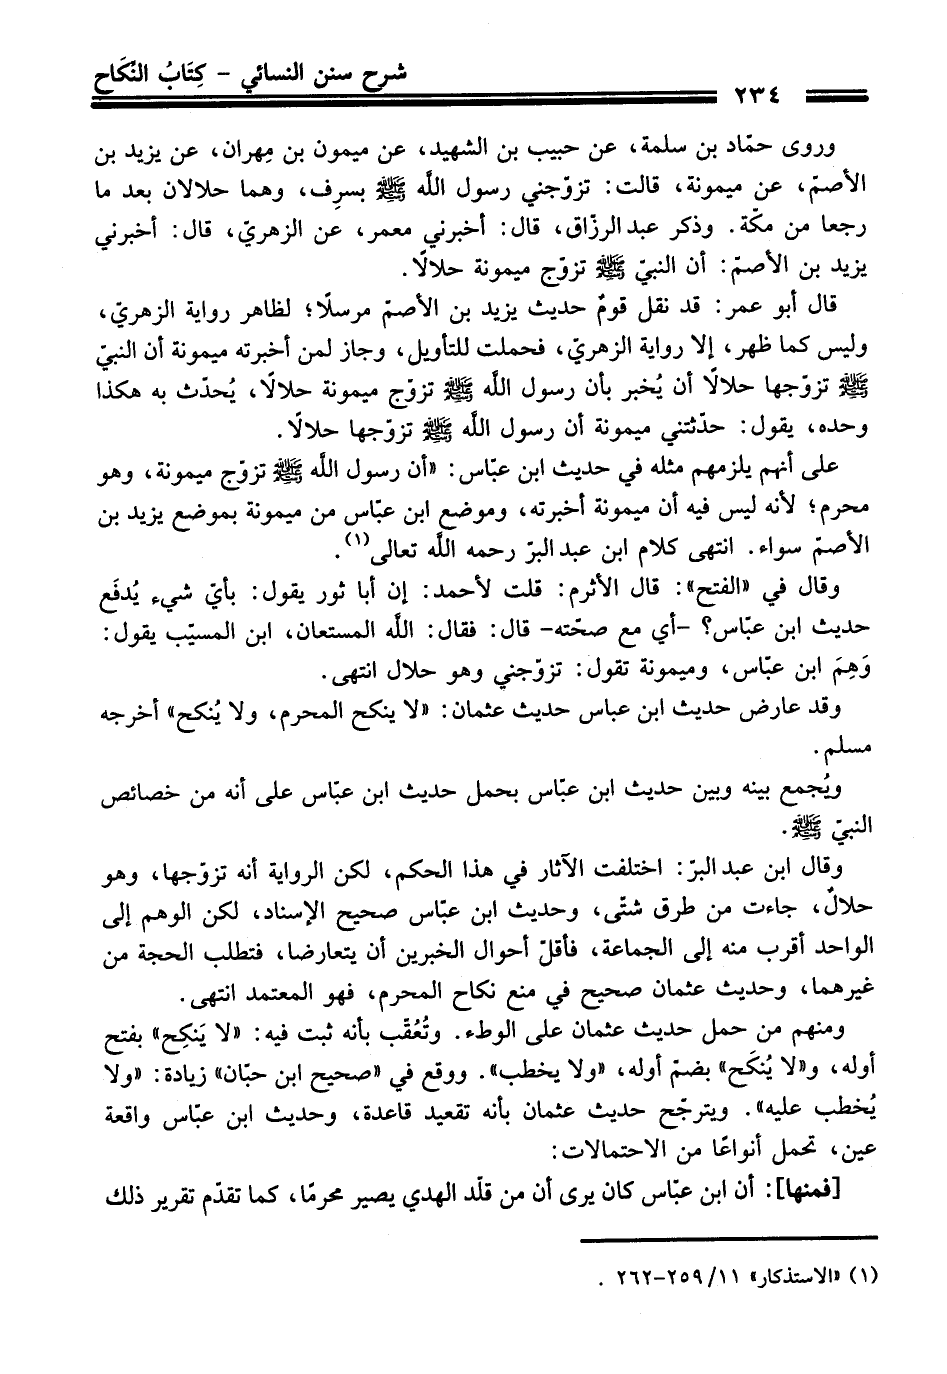 شرح سنن النسائي - كِتَابُ النِّكَاحِ
٢٣٤
وروى حمّاد بن سلمة، عن حبيب بن الشهيد، عن ميمون بن مِهران، عن يزيد بن
الأصمّ، عن ميمونة، قالت: تزوّجني رسول اللَّه ﷺ بسرِف، وهما حلالان بعد ما
رجعا من مكّة. وذكر عبدالرزّاق، قال: أخبرني معمر، عن الزهريّ، قال: أخبرني
يزيد بن الأصمّ: أن النبيّ ﷺ تزوّج ميمونة حلالًا.
قال أبو عمر: قد نقل قومٌ حديث يزيد بن الأصمّ مرسلًا؛ لظاهر رواية الزهريّ،
وليس كما ظهر، إلا رواية الزهريّ، فحملت للتأويل، وجاز لمن أخبرته ميمونة أن النبيّ
ﷺ تزوّجها حلالًا أن يُخبر بأن رسول اللَّه ﷺ تزوّج ميمونة حلالًا، يُحدّث به هكذا
وحده، يقول: حدّثتني ميمونة أن رسول اللَّه ﷺ تزوّجها حلالًا.
على أنهم يلزمهم مثله في حديث ابن عبّاس: «أن رسول اللَّه ﷺ تزوّج ميمونة، وهو
محرم؛ لأنه ليس فيه أن ميمونة أخبرته، وموضع ابن عبّاس من ميمونة بموضع يزيد بن
الأصمّ سواء. انتهى كلام ابن عبدالبرّ رحمه اللَّه تعالى(١).
وقال في «الفتح»: قال الأثرم: قلت لأحمد: إن أبا ثور يقول: بأيّ شيء يُدفَع
حديث ابن عبّاس؟ -أي مع صحّته- قال: فقال: اللَّه المستعان، ابن المسيّب يقول:
وَهِمَ ابن عبّاس، وميمونة تقول: تزوّجني وهو حلال انتهى.
وقد عارض حديث ابن عباس حديث عثمان: «لا ينكح المحرم، ولا يُنكح» أخرجه
مسلم.
ويُجمع بينه وبين حديث ابن عبّاس بحمل حديث ابن عبّاس على أنه من خصائص
النبيّ ﷺ.
وقال ابن عبدالبرّ: اختلفت الآثار في هذا الحكم، لكن الرواية أنه تزوّجها، وهو
حلالٌ، جاءت من طرق شتّى، وحديث ابن عبّاس صحيح الإسناد، لكن الوهم إلى
الواحد أقرب منه إلى الجماعة، فأقلّ أحوال الخبرين أن يتعارضا، فتطلب الحجة من
غيرهما، وحديث عثمان صحيح في منع نكاح المحرم، فهو المعتمد انتهى.
ومنهم من حمل حديث عثمان على الوطء. وتُعُقّب بأنه ثبت فيه: «لا يَنكِح» بفتح
أوله، و«لا يُنكَح» بضمّ أوله، «ولا يخطب». ووقع في «صحيح ابن حبّان» زيادة: «ولا
يُخطب عليه». ويترجّح حديث عثمان بأنه تقعيد قاعدة، وحديث ابن عبّاس واقعة
عين، تحمل أنواعًا من الاحتمالات:
[فمنها]: أن ابن عبّاس كان يرى أن من قلّد الهدي يصير محرمًا، كما تقدّم تقرير ذلك
(١) «الاستذكار» ١١/ ٢٥٩-٢٦٢ .